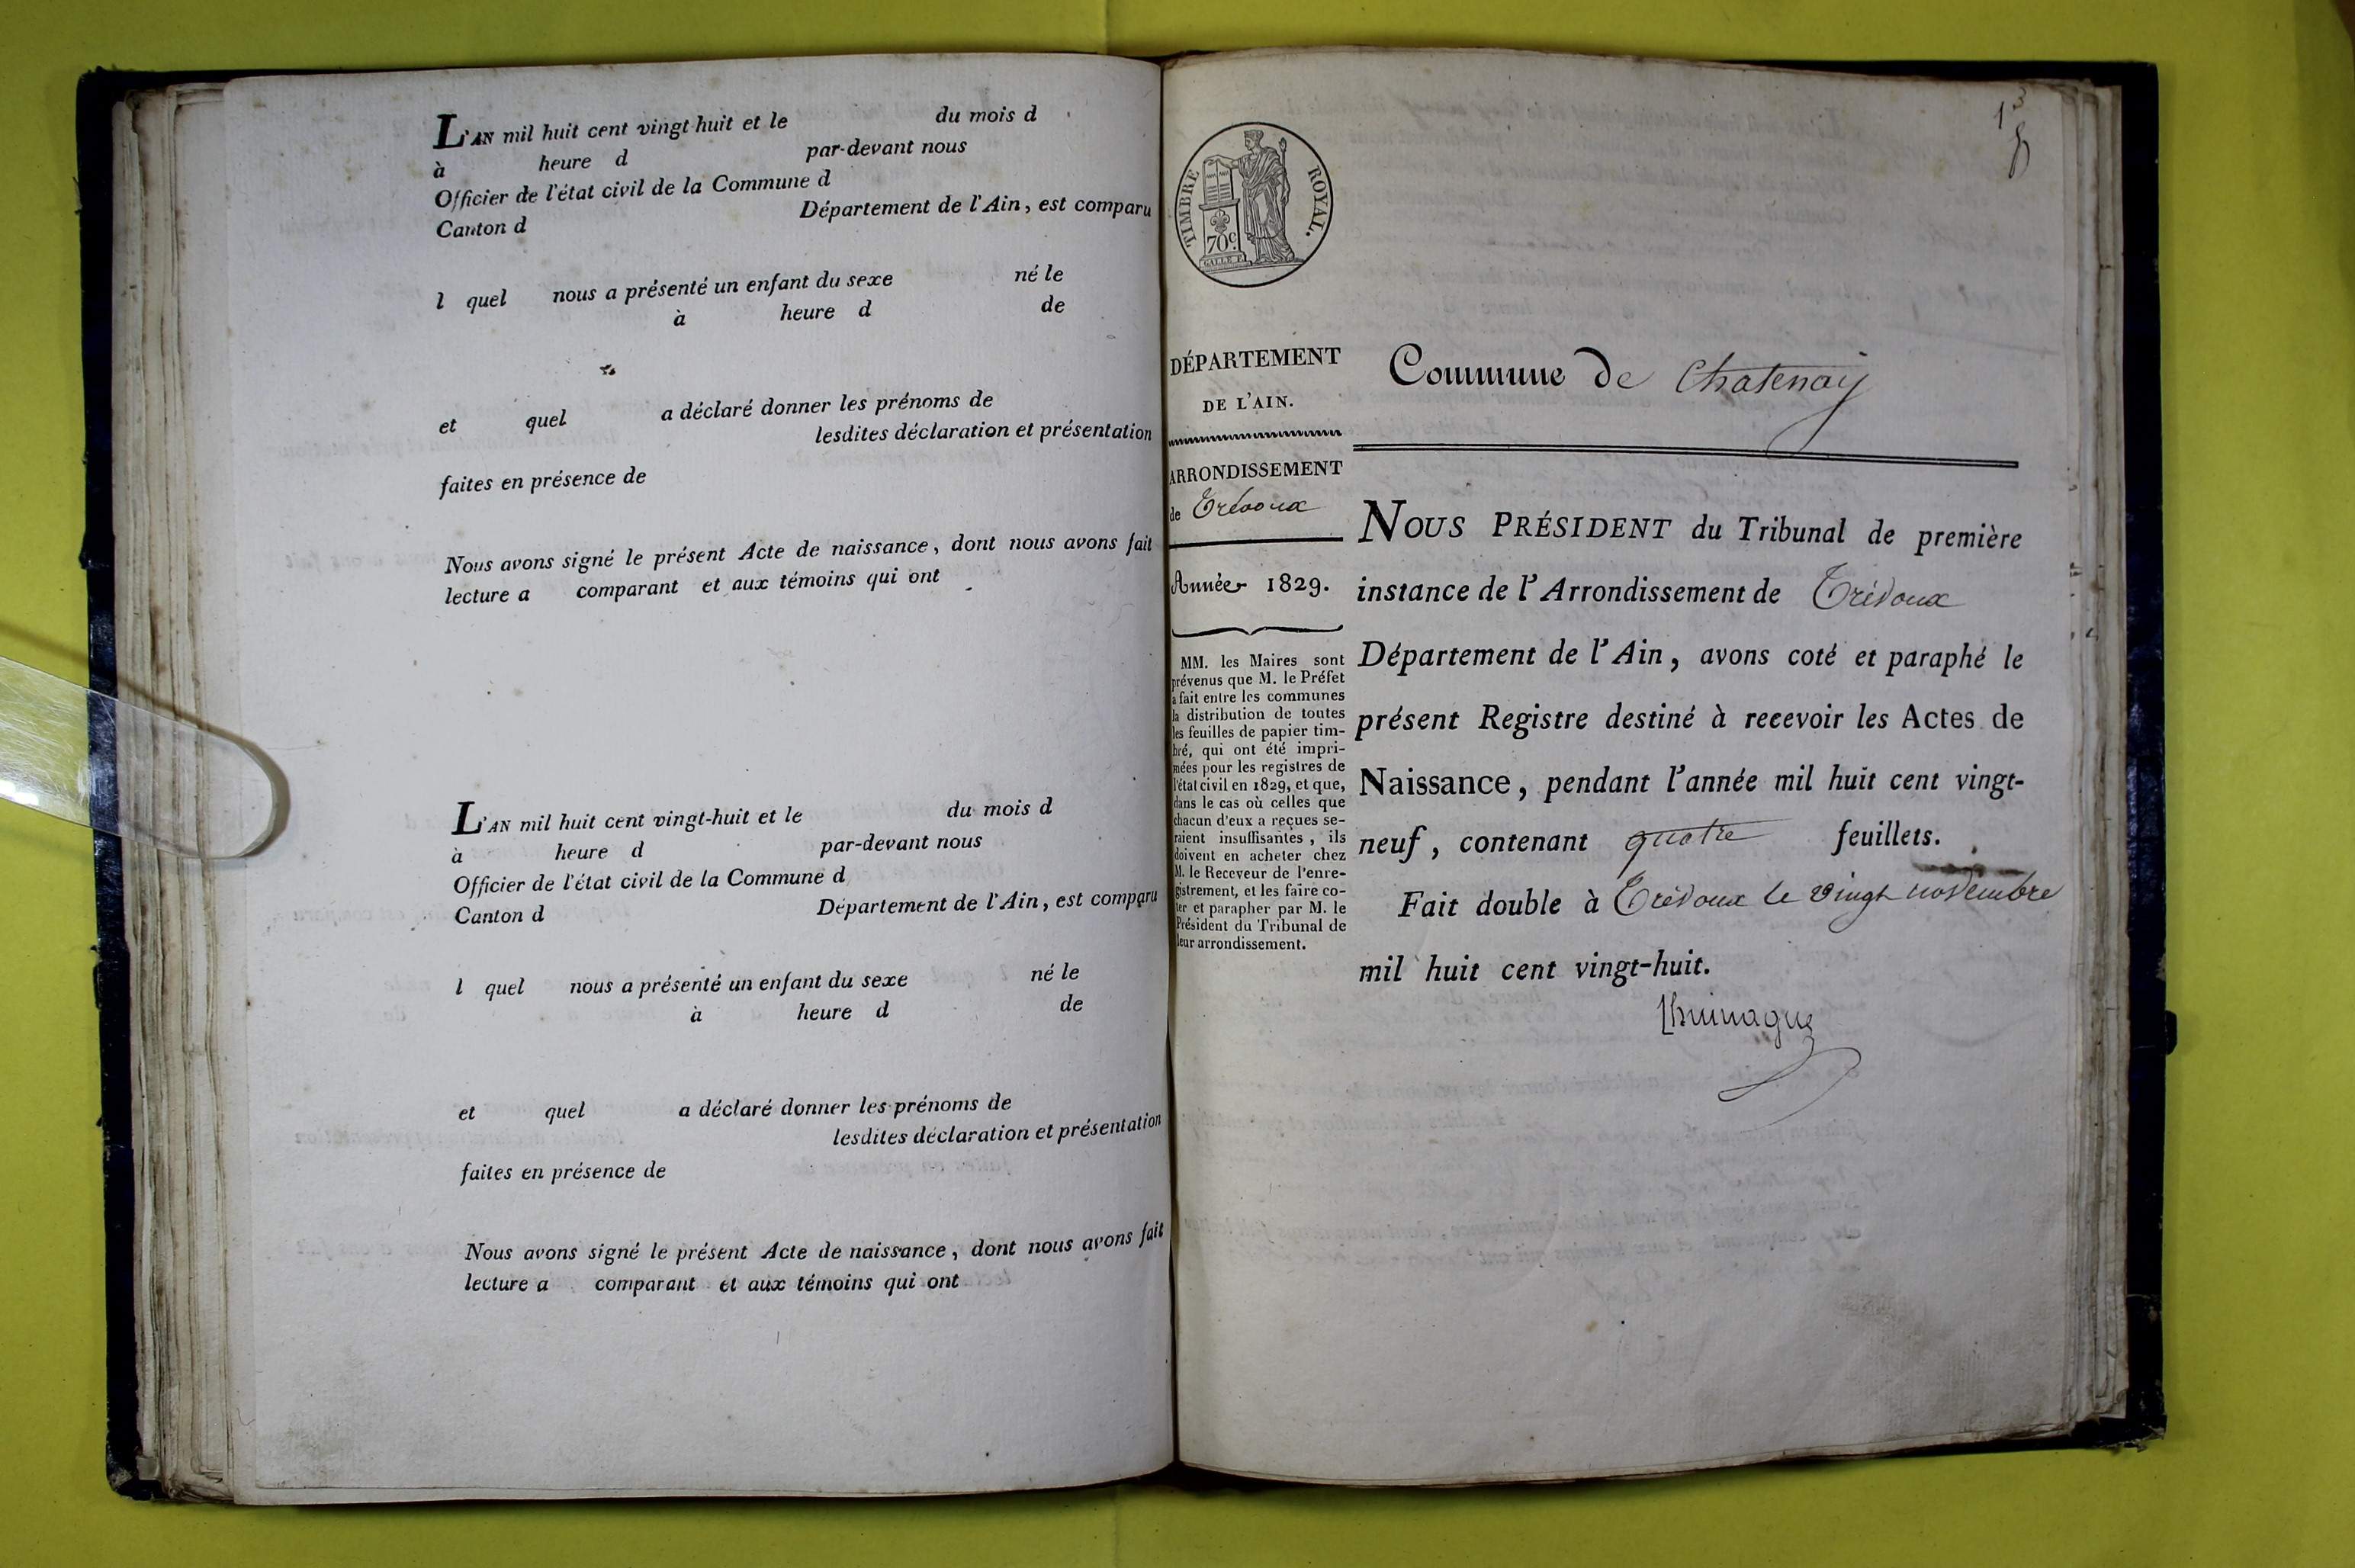 L'AN mil huit cent vingt-huit et le du mois d
à heure d par-devant nous
Officier de l'état civil de la Commune d
Canton d Département de l'Ain, est comparu
l quel nous a présenté un enfant du sexe né le
à heure d de
et quel a déclaré donner les prénoms de
lesdites déclaration et présentation
faites en présence de
Nous avons signé le présent Acte de naissance, dont nous avons fait
lecture a comparant et aux témoins qui ont
L'AN mil huit cent vingt-huit et le du mois d
à heure d par-devant nous
Officier de l'état civil de la Commune d
Canton d Département de l'Ain, est comparu
l quel nous a présenté un enfant du sexe né le
à heure d de
et quel a déclaré donner les prénoms de
lesdites déclaration et présentation
faites en présence de
Nous avons signé le présent Acte de naissance, dont nous avons fait
lecture a comparant et aux témoins qui ont
TIMBRE ROYAL.
70c.
GALLE F.
DÉPARTEMENT
DE L'AIN.
ARRONDISSEMENT
de Trévoux
Année 1829.
MM. les Maires sont
prévenus que M. le Préfet
a fait entre les communes
la distribution de toutes
les feuilles de papier tim-
bré, qui ont été impri-
mées pour les registres de
l'état civil en 1829, et que,
dans le cas où celles que
chacun d'eux a reçues se-
raient insuffisantes, ils
doivent en acheter chez
M. le Receveur de l'enre-
gistrement, et les faire co-
ter et parapher par M. le
Président du Tribunal de
leur arrondissement.
Commune de Chatenay
NOUS PRÉSIDENT du Tribunal de première
instance de l'Arrondissement de Trévoux
Département de l'Ain, avons coté et paraphé le
présent Registre destiné à recevoir les Actes de
Naissance, pendant l'année mil huit cent vingt-
neuf, contenant quatre feuillets.
Fait double à Trévoux le vingt novembre
mil huit cent vingt-huit.